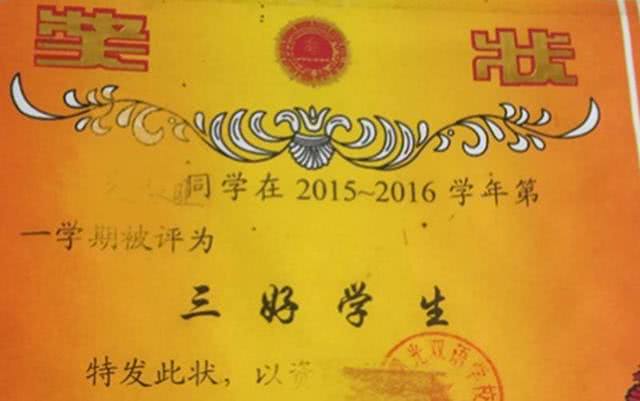 奖状
同学在 2015~2016 学年第
一学期被评为
三好学生
特发此状，以资
光双语学校